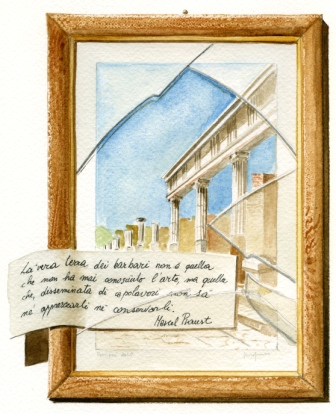 La vera terra dei barbari non è quella
che non ha mai conosciuto l'arte, ma quella
che, disseminata di capolavori non sa
ne apprezzarli ne conservarli.
Marcel Proust